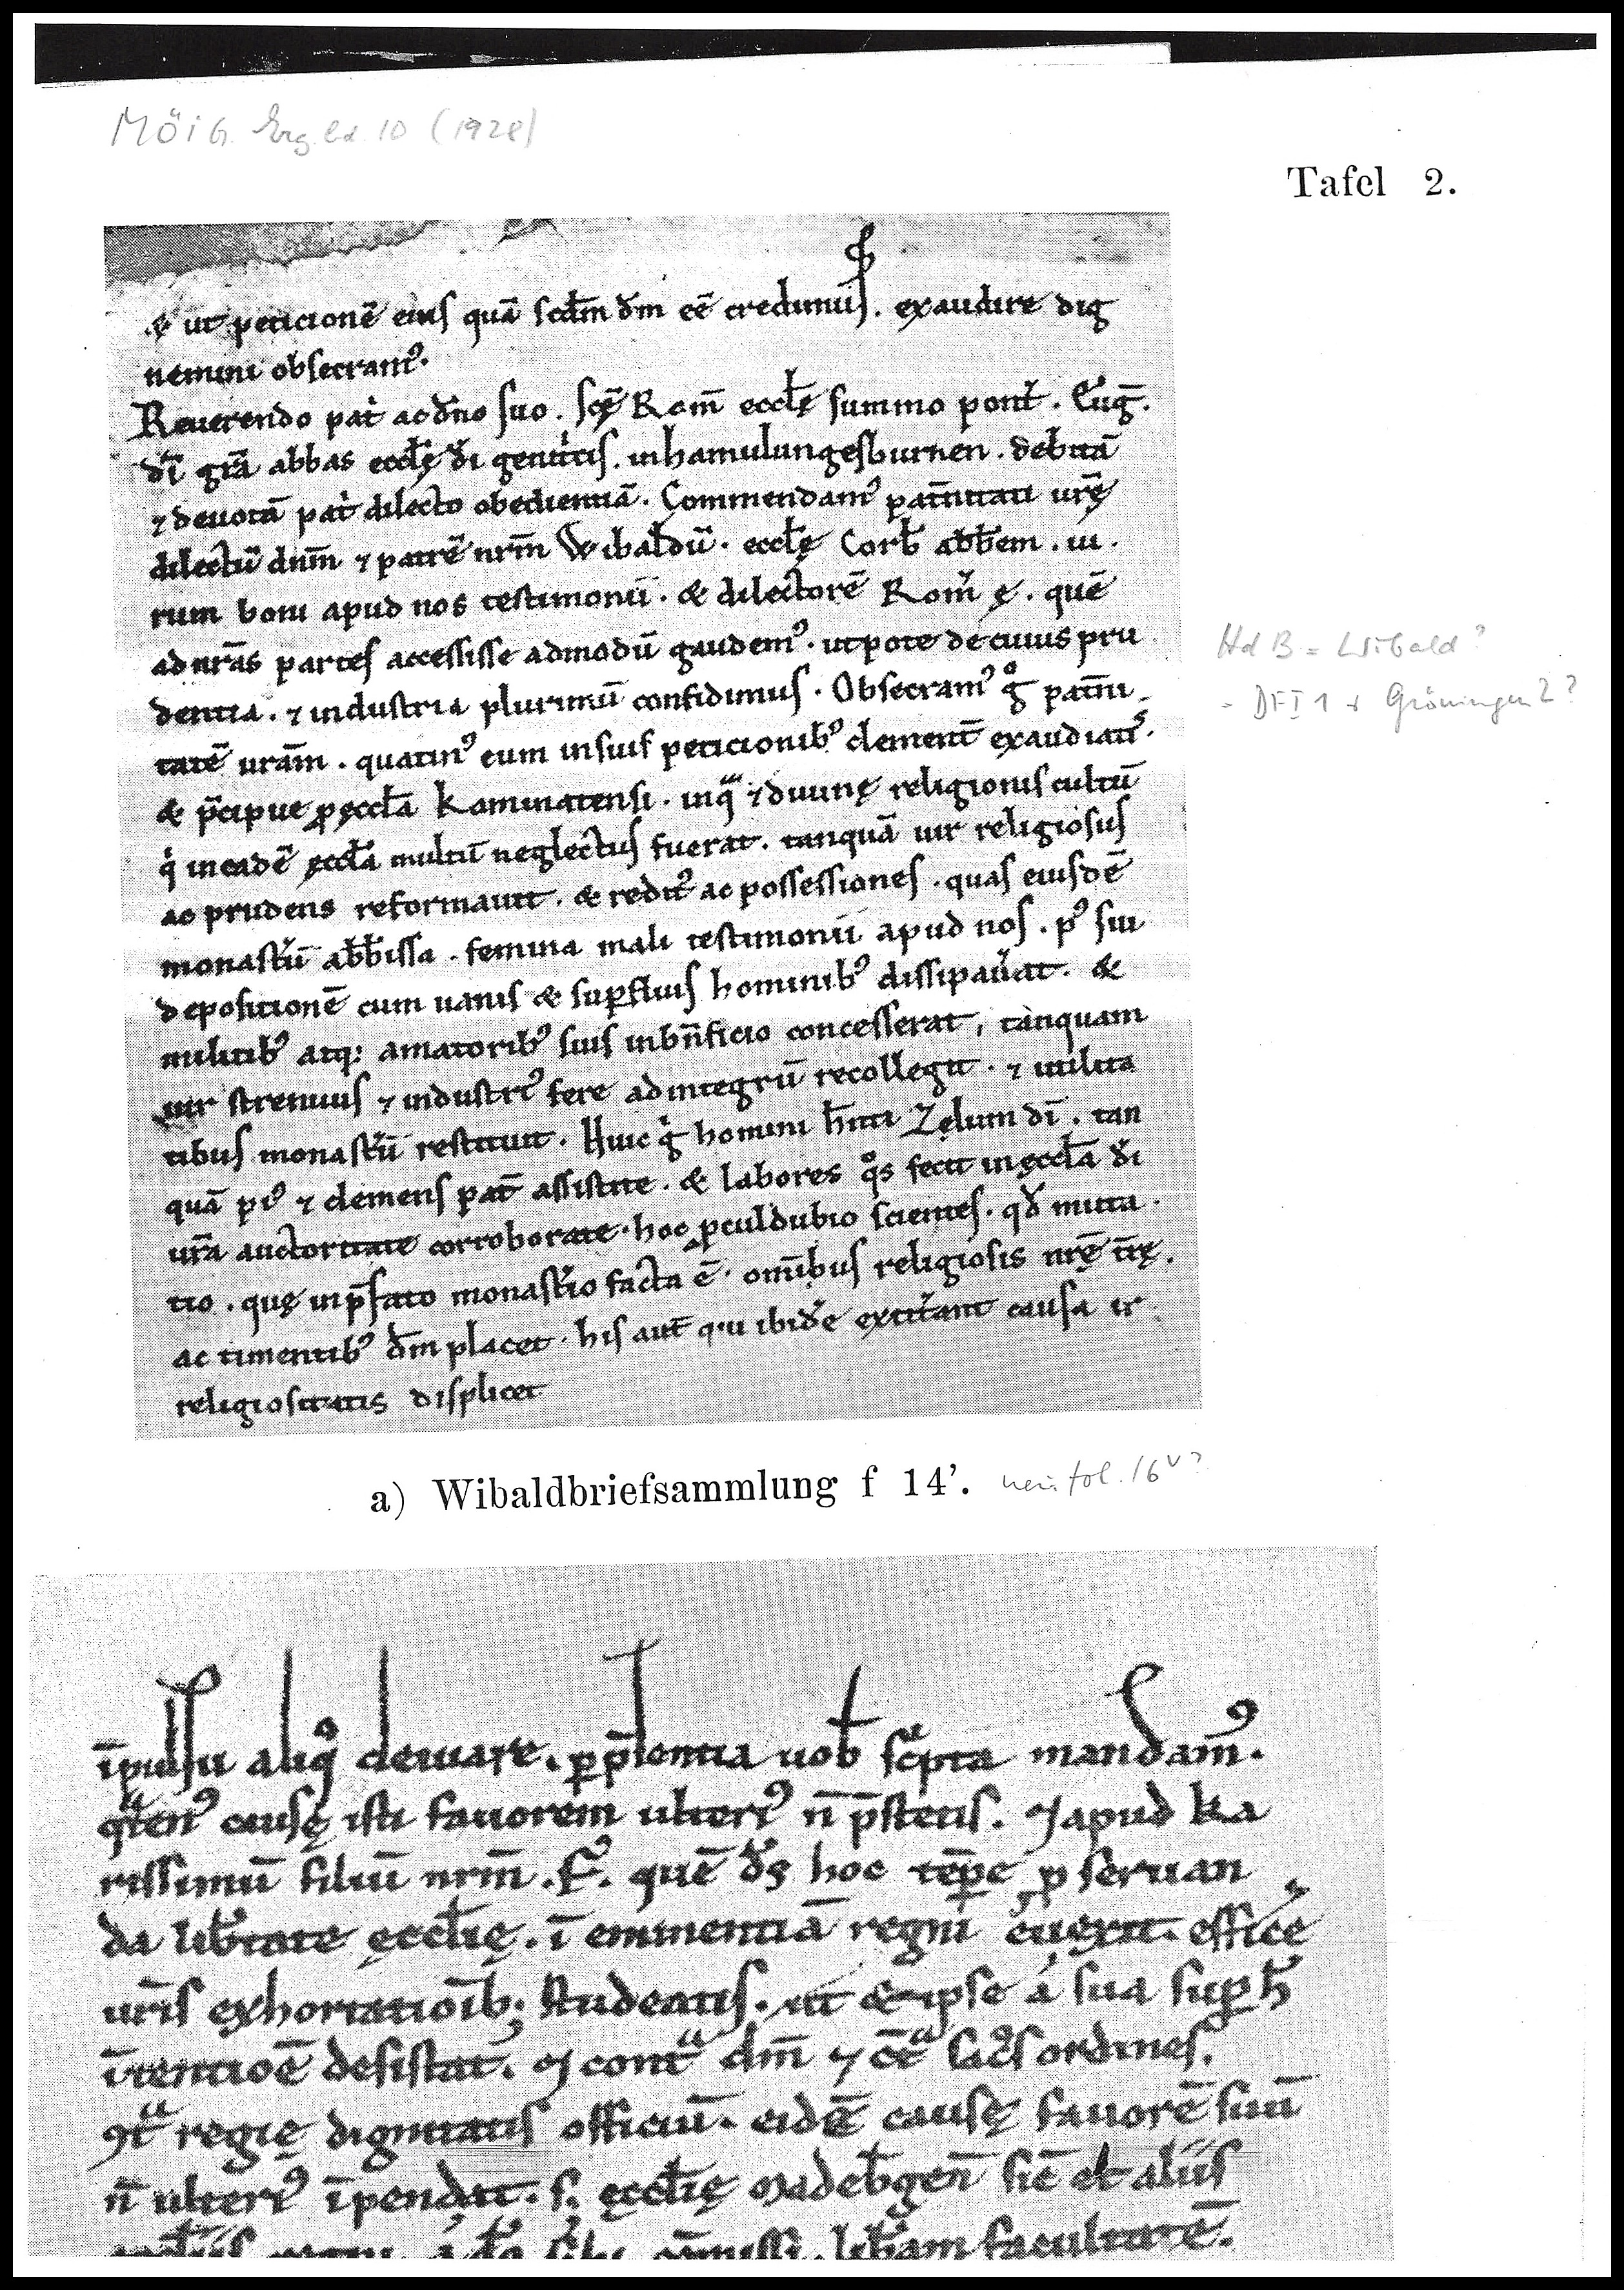 MÖIG Erg.bd. 10 (1928)
Tafel 2.
& ut peticionē eius quā scdm̄ dm̄ eē credimus. exaudire dig
nemini obsecram᷒.
Reuerendo pat̉ ac dn̄o suo. scę̄ Rom̄ eccłę summo pont̉. Euḡ.
dī grā abbas eccłę dī genit̉cis. in hamulungesburnen. debitā
⁊ deuotā pat̉ dilecto obedientiā. Commendam᷒ pat̄nitati ur̄ę
dilectū dnm̄ ⁊ patrē nrm̄ Wibaldū. eccłę Corb̄ abb̄em. ui.
rum boni apud nos testimonii. & dilectorē Rom̄ ę. quē
ad nr̄as partes accessisse admodū gaudem᷒. utpote de cuius pru
dentia. ⁊ industria plurimū confidimus. Obsecram᷒ gͦ pat̄ni
tatē urām. quatin᷒ eum in suis peticionib᷒ clement̄ exaudiat᷒.
& p̄cipue p̱ ęccła kaminatensi. in qͣ ⁊ diuinę religionis cultū
qͥ in eadē ęccła multū neglectus fuerat. tanquā uir religiosus
ac prudens reformauit. & redit᷒ ac possessiones. quas eiusdē
monast̉ii abb̄issa. femina mali testimonii apud nos. p᷒ sui
depositionē cum uanis & sup̱fluis hominib᷒ dissipau̓at. &
militib᷒ atq; amatorib᷒ suis in bn̄ficio concesserat, tanquam
uir strenuus ⁊ industri᷒ fere ad integrū recollegit. ⁊ utilita
tibus monast̉ii restituit. Huic gͥ homini hn̄ti Zęlum dī. tan
quā pi᷒ ⁊ clemens pat̄ assistite. & labores qͦs fecit in ęccła dī
urā auctoritate corroborate. hoc p̱culdubio scientes. qd̄ muta
tio. quę in p̄fato monast̉io facta ē. om̄ibus religiosis nrę̄ tr̄ę.
ac timentib᷒ dm̄ placet. his aut̄ qui ibidē extit̉ant causa ir
religiositatis displicet
Hd B = Wibald?
= DF I 1 + Gröningen 2?
a) Wibaldbriefsammlung f 14’. nein fol. 16ᵛ?
īpulsu aliqͦ deuiare. p̱ p̄sentia uob̄ sc̉pta mandam᷒.
qͣten᷒ causę isti fauorem ulteri᷒ n̄ p̄stetis. ⁊ apud ka
rissimū filiū nrm̄. F̉. quē ds̄ hoc tēp̱e p̱ seruan
da lib̉tate ęccłię. ī eminentiā regni euexit. effice
ur̄is exhortatiōib; studeatis. ut & ipse a sua sup̱ h̄
ītentiōē desistat. ⁊ contͣ dm̄ ⁊ cͣ sac̉s ordines.
ꝯtͣ regię dignitatis officiū. eidē causę fauorē suū
n̄ ulteri᷒ īpendat. s; ęccłię Madeb̉gen̄ sic̄ et aliis
ęccłiis regni. a do̅ sibi cōmissi. lib̉am facultatē.